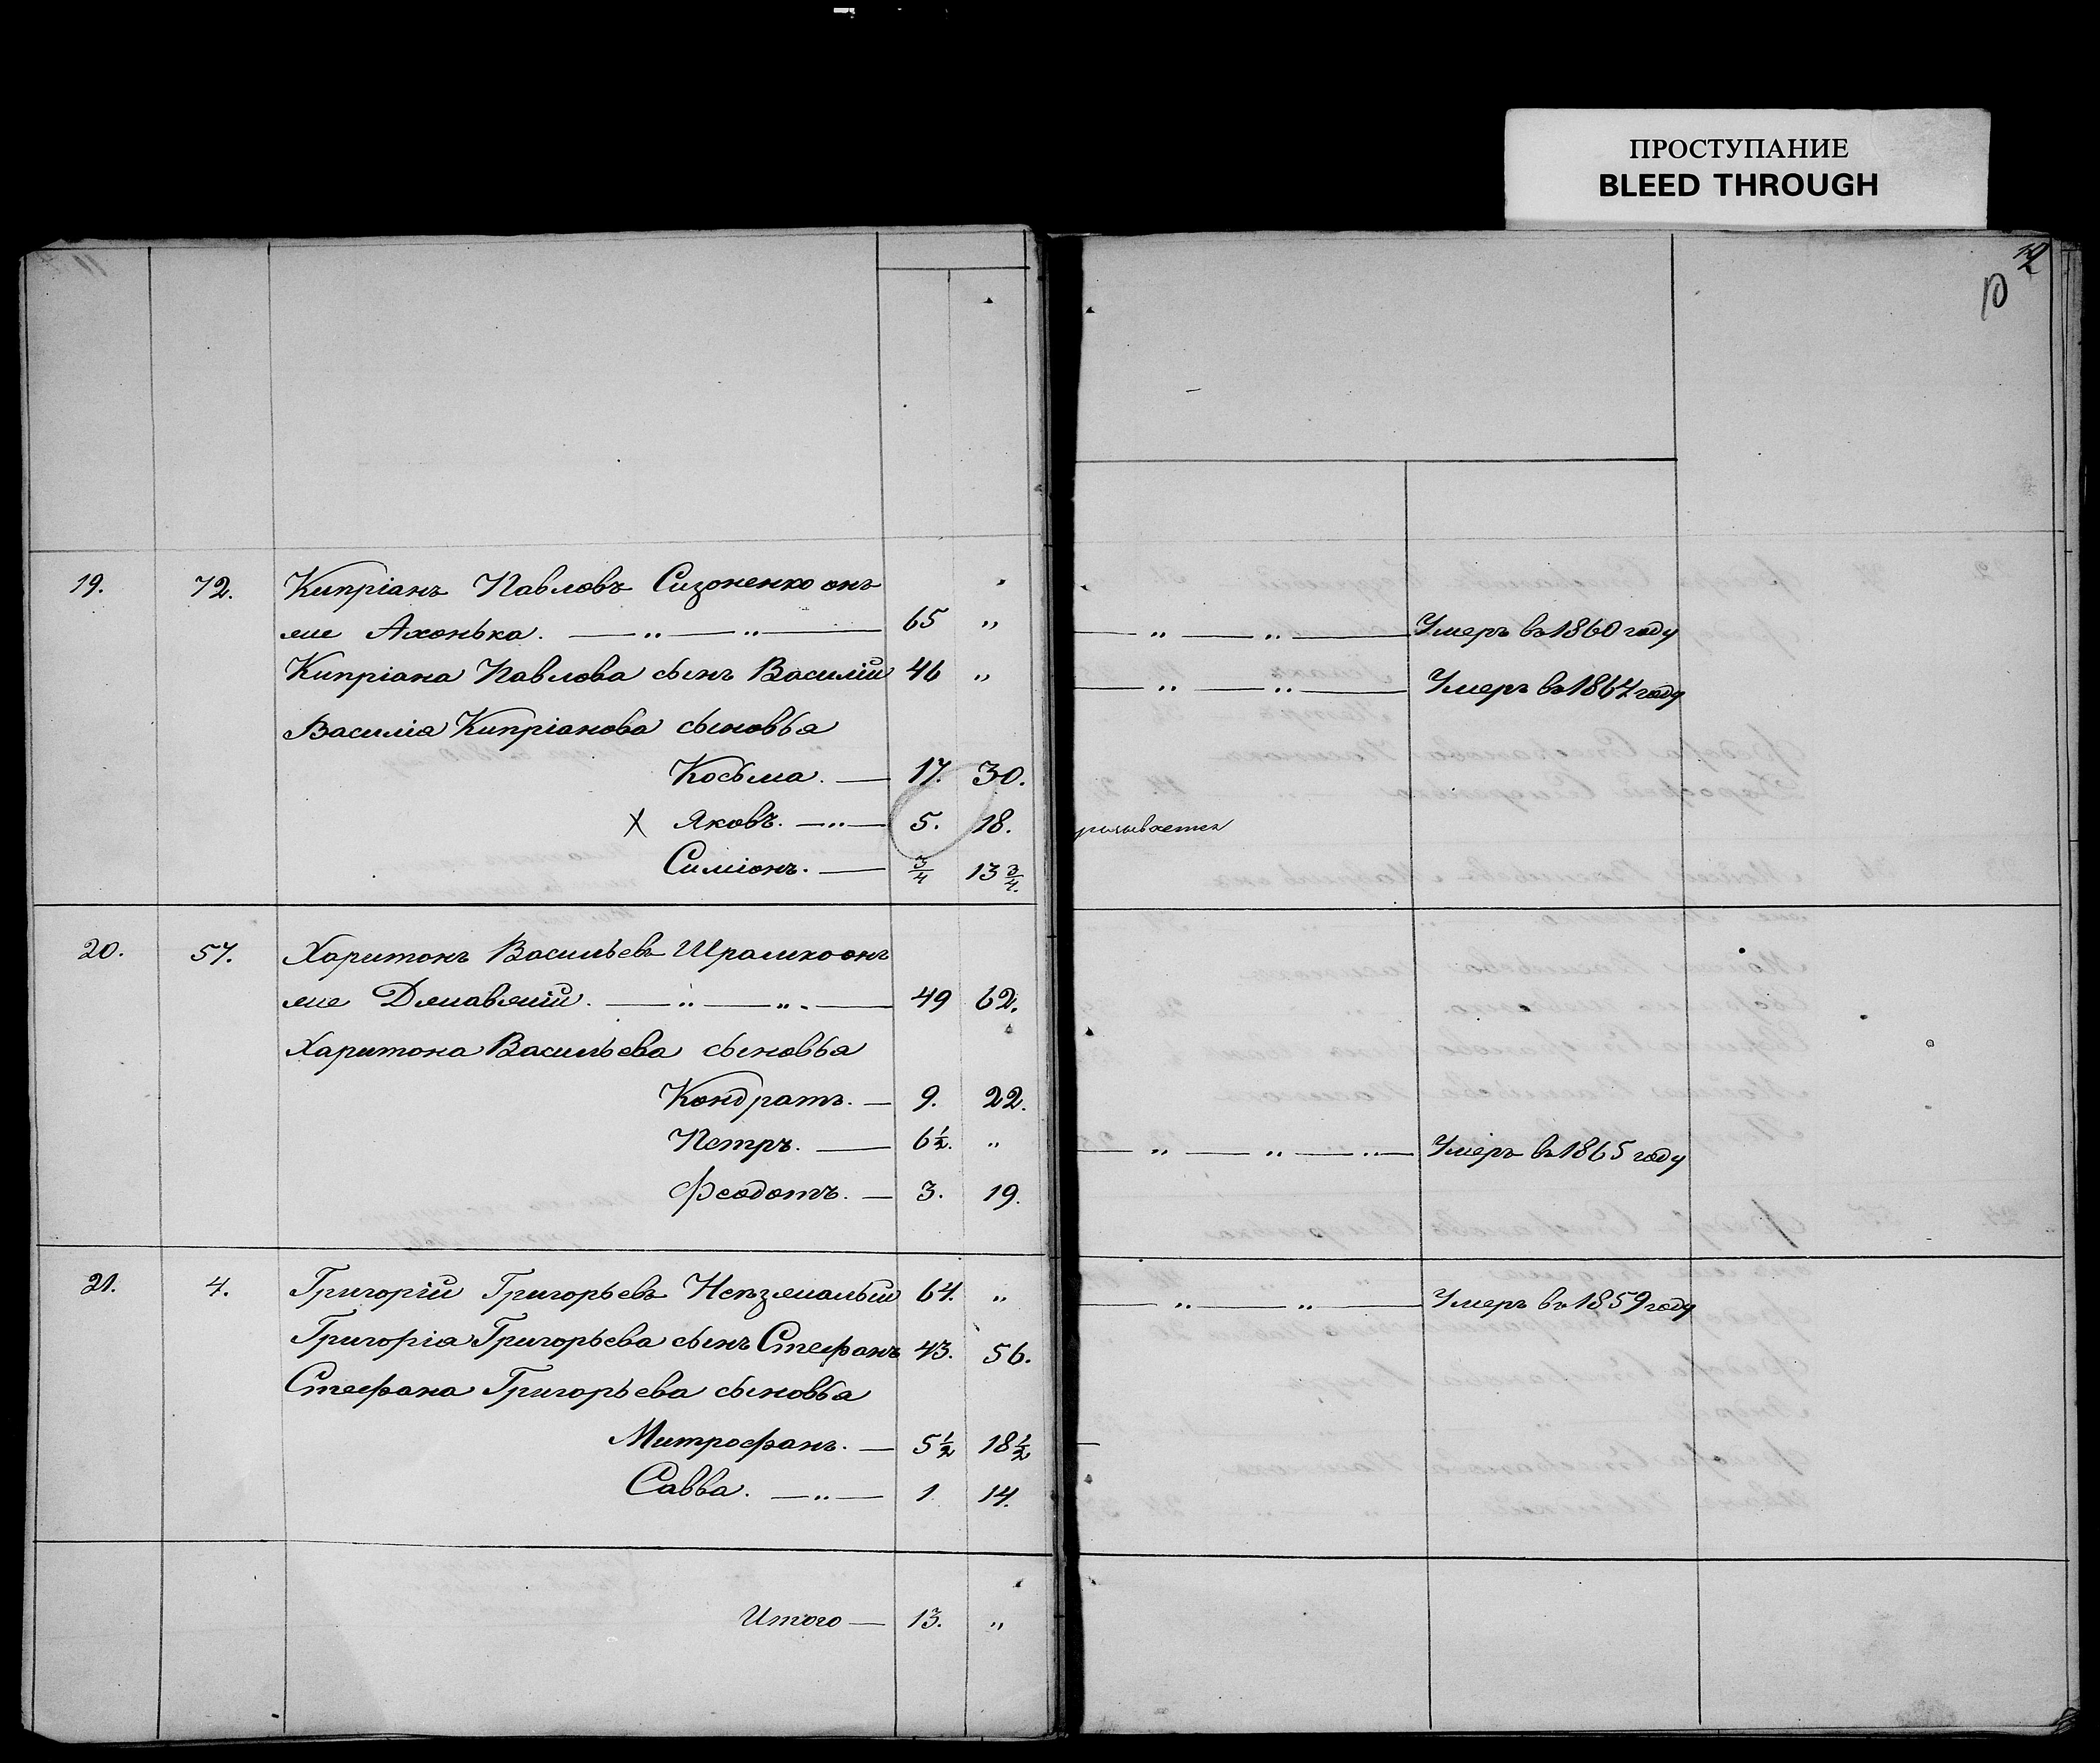 ПРОСТУПАНИЕ
BLEED THROUGH
12
10
19. 72. Кипріанъ Павловъ Сизоненко онъ
же Ахонька. — „ — „ — 65 „ — „ — „ — Умеръ въ 1860 году
Кипріана Павлова сынъ Василій 46 „ — „ — „ — Умеръ въ 1864 году
Василія Кипріанова сыновья
Косьма. — 17. 30.
X Яковъ. — „ — 5. 18.
Симіонъ. — 3/4 13 3/4.
20. 57. Харитонъ Васильевъ онъ
же — „ — „ — 49 62.
Харитона Васильева сыновья
Кондратъ. — 9. 22.
Петръ. — 6 1/2. „ — „ — „ — „ — Умеръ въ 1865 году
Феодотъ. — 3. 19.
21. 4. Григорій Григорьевъ 64. „ — „ — „ — Умеръ въ 1859 году
Григорія Григорьева сынъ Стефанъ 43. 56.
Стефана Григорьева сыновья
Митрофанъ. — 5 1/2 18 1/2 —
Савва. — „ — 1 14.
Итого — 13. „